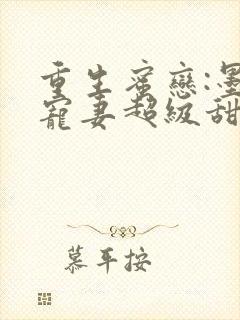 重生蜜戀:墨
寵妻超級甜
慕耳按